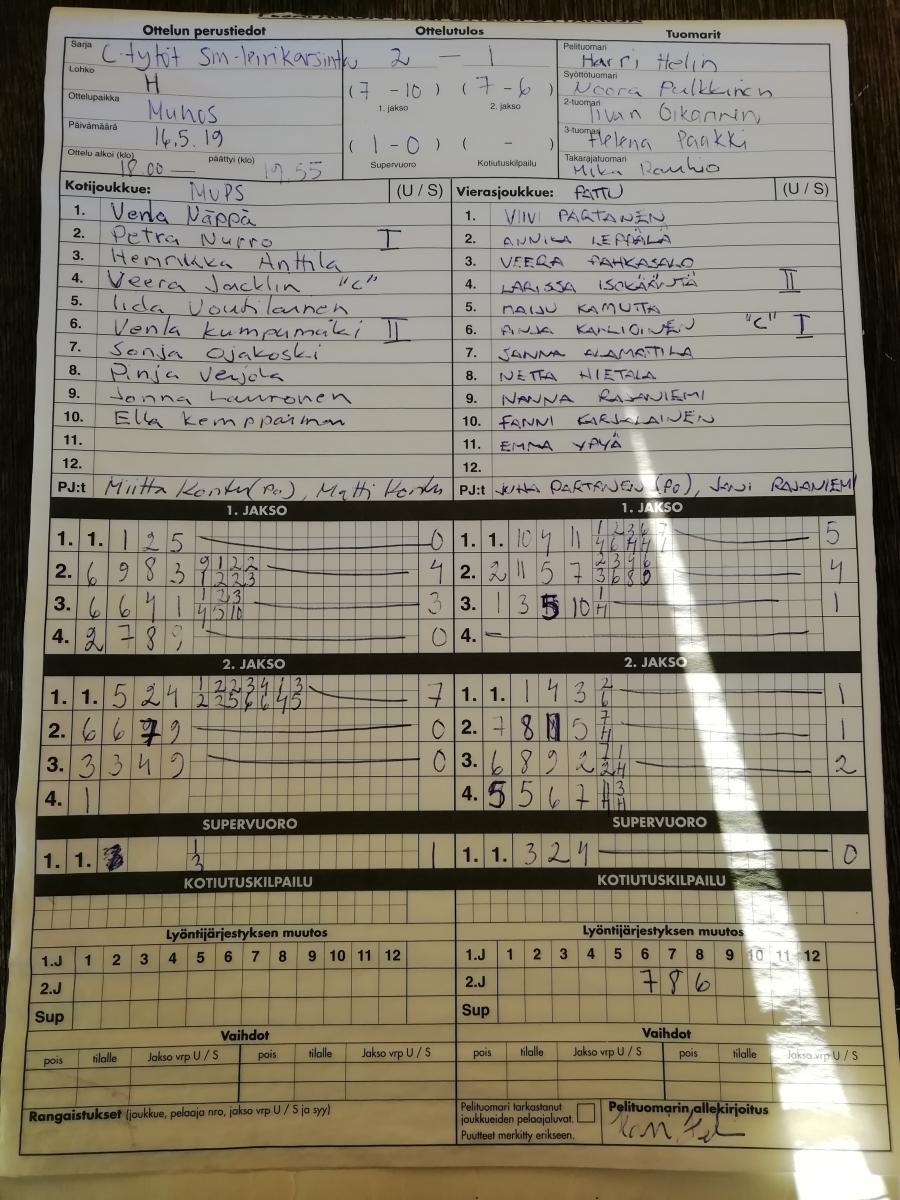 Ottelun perustiedot
Ottelutulos
Tuomarit
Sarja C-tytöt Sm-leirikarsinta
2 — 1
Pelituomari Harri Helin
Lohko H
(7 - 10) (7 - 6)
1. jakso 2. jakso
Syöttötuomari Noora Pulkkinen
Ottelupaikka Muhos
2-tuomari Iivari Oikarinen
Päivämäärä 16.5.19
(1 - 0) ( - )
Supervuoro Kotiutuskilpailu
3-tuomari Helena Paakki
Ottelu alkoi (klo) päättyi (klo)
18.00 — 19.55
Takarajatuomari Mika Rauhio
Kotijoukkue: MuPS (U / S)
1. Venla Näppä
2. Petra Nurro I
3. Henriikka Anttila
4. Veera Jacklin "C"
5. Iida Voutilainen
6. Venla Kumpumäki II
7. Sonja Ojakoski
8. Pinja Verjola
9. Jonna Lauronen
10. Ella Kemppainen
11.
12.
PJ:t Miitta Kontu (PO), Matti Kontu
Vierasjoukkue: PATTU (U / S)
1. VIIVI PARTANEN
2. ANNIKA LEPPÄLÄ
3. VEERA PAHKASALO
4. LARISSA ISOKÄÄNTÄ II
5. MAIJU KAMUTTA
6. PINJA KALLIOINEN "C" I
7. JANNA ALAMATTILA
8. NETTA HIETALA
9. NANNA RAJANIEMI
10. FANNI KARJALAINEN
11. EMMA YPYÄ
12.
PJ:t JUHA PARTANEN (PO), JANI RAJANIEMI
1. JAKSO
1. 1. 1 2 5 0
2. 6 9 8 3 9 1 2 2 4
1 2 2 3
3. 6 6 4 1 1 2 3 3
4 5 10
4. 2 7 8 9 0
1. JAKSO
1. 1. 10 4 11 1 2 3 6 7 5
4 6 H H
2. 2 11 5 7 2 3 4 6 4
3 6 8
3. 1 3 5 10 1 1
H
4. —
2. JAKSO
1. 1. 5 2 4 1 2 2 3 4 1 3 7
2 2 5 6 6 4 5
2. 6 6 7 9 0
3. 3 3 4 9 0
4. 1
2. JAKSO
1. 1. 1 4 3 2 1
6
2. 7 8 5 7 1
H
3. 6 8 9 2 7 1 2
2 H
4. 5 5 6 7 3
H H
SUPERVUORO
1. 1. 1 1
3
SUPERVUORO
1. 1. 3 2 4 0
KOTIUTUSKILPAILU
KOTIUTUSKILPAILU
Lyöntijärjestyksen muutos
1.J 1 2 3 4 5 6 7 8 9 10 11 12
2.J
Sup
Lyöntijärjestyksen muutos
1.J 1 2 3 4 5 6 7 8 9 10 11 12
2.J 7 8 6
Sup
Vaihdot
pois tilalle Jakso vrp U / S pois tilalle Jakso vrp U / S
Vaihdot
pois tilalle Jakso vrp U / S pois tilalle Jakso vrp U / S
Rangaistukset (joukkue, pelaaja nro, jakso vrp U / S ja syy)
Pelituomari tarkastanut
joukkueiden pelaajaluvat.
Puutteet merkitty erikseen.
Pelituomarin allekirjoitus